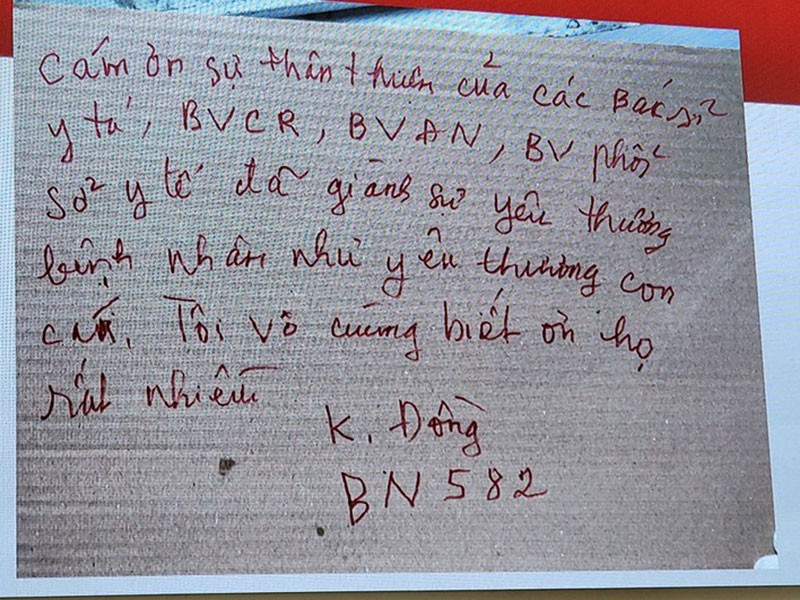 Cám ơn sự thân thiện của các Bác sĩ
y tá, BVCR, BVAN, BV phổi
sở y tế đã giành sự yêu thương
bệnh nhân như yêu thương con
cái. Tôi vô cùng biết ơn họ
rất nhiều
K. Đồng
BN 582